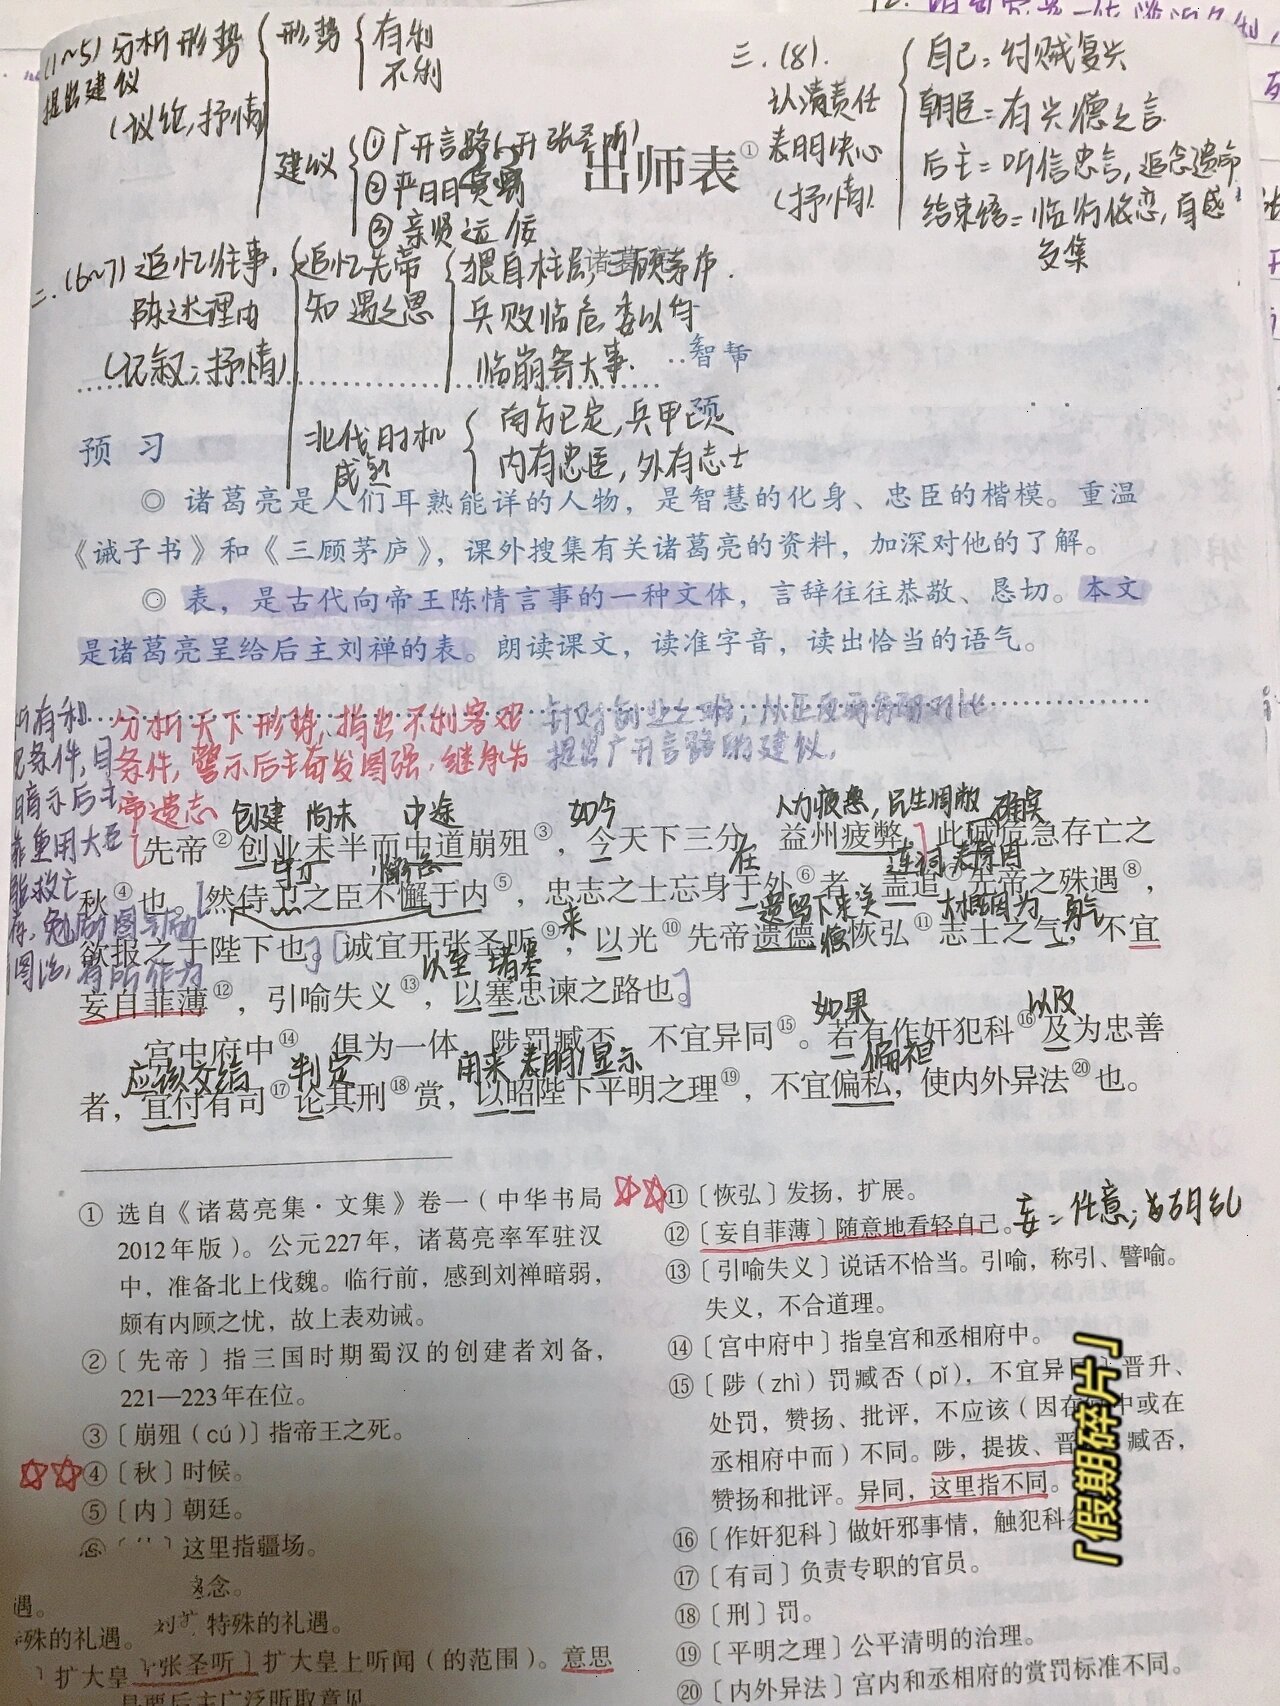 (1~5) 分析形势
提出建议
(议论,抒情)
形势
有利
不利
建议
①广开言路(开张圣听)
②严明赏罚
③亲贤远佞
三.(8).
认清责任
表明决心
(抒情).
自己:讨贼复兴
朝臣=有兴德之言
后主=听信忠言,追念遗命
结束语=临行依恋,百感
交集
出师表①
诸葛亮
二.(6~7)追忆往事,
陈述理由
(记叙;抒情)
追忆先帝
知遇之恩
猥自枉屈,三顾茅庐.
兵败临危委以身
临崩寄大事.
北伐时机
成熟
南方已定,兵甲已
内有忠臣,外有志士
预 习
◎ 诸葛亮是人们耳熟能详的人物,是智慧的化身、忠臣的楷模。重温
《诫子书》和《三顾茅庐》,课外搜集有关诸葛亮的资料,加深对他的了解。
◎ 表,是古代向帝王陈情言事的一种文体,言辞往往恭敬、恳切。本文
是诸葛亮呈给后主刘禅的表。朗读课文,读准字音,读出恰当的语气。
分析天下形势,指出不利客观
条件,警示后主奋发图强,继承先
帝遗志
提出广开言路的建议.
有利
条件,
暗示后主
重用大臣
救亡
创建 尚未 中途 如今 人力疲惫,民生凋敝 确实
先帝②创业未半而中道崩殂③,今天下三分,益州疲弊,此诚危急存亡之
守 懈怠 在 连词表原因
秋④也。然侍卫之臣不懈于内⑤,忠志之士忘身于外⑥者,盖追⑦先帝之殊遇⑧,
来 遗留下来 勇气
欲报之于陛下也。诚宜开张圣听⑨,以光⑩先帝遗德,恢弘⑪志士之气,不宜
以至 堵塞
妄自菲薄⑫,引喻失义⑬,以塞忠谏之路也。
如果 以及
宫中府中⑭,俱为一体,陟罚臧否,不宜异同⑮。若有作奸犯科⑯及为忠善
应该交给 判定 用来 表明/显示 偏袒
者,宜付有司⑰论其刑⑱赏,以昭陛下平明之理⑲,不宜偏私,使内外异法⑳也。
① 选自《诸葛亮集·文集》卷一(中华书局
2012年版)。公元227年,诸葛亮率军驻汉
中,准备北上伐魏。临行前,感到刘禅暗弱,
颇有内顾之忧,故上表劝诫。
②〔先帝〕指三国时期蜀汉的创建者刘备,
221—223年在位。
③〔崩殂(cú)〕指帝王之死。
④〔秋〕时候。
⑤〔内〕朝廷。
这里指疆场。
念。
遇。
特殊的礼遇。
殊的礼遇。
张圣听〕扩大皇上听闻(的范围)。意思
〕扩大皇
是要后主广泛听取意见
⑪〔恢弘〕发扬,扩展。
⑫〔妄自菲薄〕随意地看轻自己。妄=任意;胡乱
⑬〔引喻失义〕说话不恰当。引喻,称引、譬喻。
失义,不合道理。
⑭〔宫中府中〕指皇宫和丞相府中。
⑮〔陟(zhì)罚臧否(pǐ),不宜异同〕晋升、
处罚,赞扬、批评,不应该(因在宫中或在
丞相府中而)不同。陟,提拔、晋 臧否,
赞扬和批评。异同,这里指不同。
⑯〔作奸犯科〕做奸邪事情,触犯科
⑰〔有司〕负责专职的官员。
⑱〔刑〕罚。
⑲〔平明之理〕公平清明的治理。
⑳〔内外异法〕宫内和丞相府的赏罚标准不同。
「假期碎片」